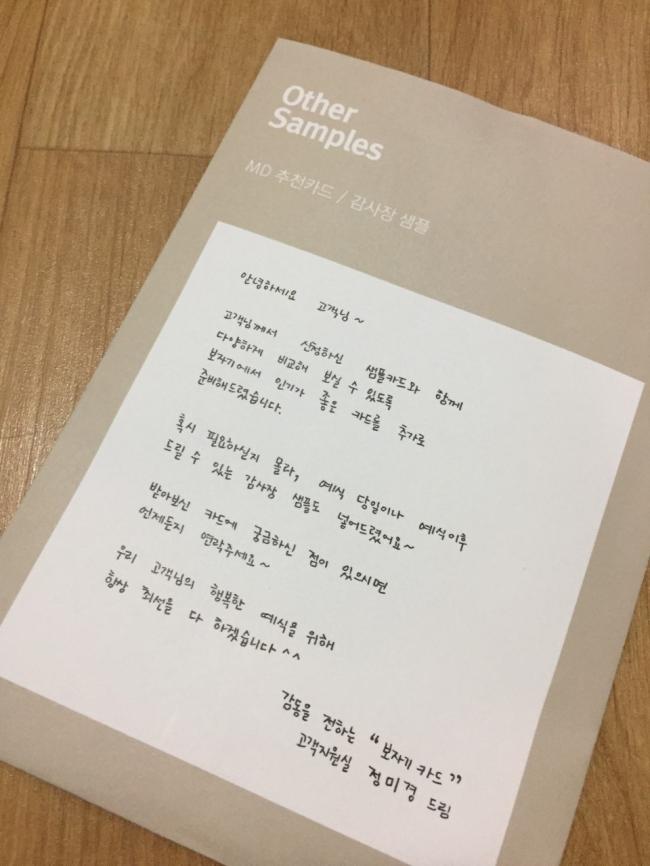 Other
Samples
MD 추천카드 / 감사장 샘플
안녕하세요 고객님 ~
고객님께서 선정하신 샘플카드와 함께
다양하게 비교해 보실 수 있도록
보자기에서 인기가 좋은 카드를 추가로
준비해드렸습니다.
혹시 필요하실지 몰라, 예식 당일이나 예식이후
드릴 수 있는 감사장 샘플도 넣어드렸어요~
받아보신 카드에 궁금하신 점이 있으시면
언제든지 연락주세요~
우리 고객님의 행복한 예식을 위해
항상 최선을 다 하겠습니다 ^^
감동을 전하는 “보자기 카드”
고객지원실 정미경 드림